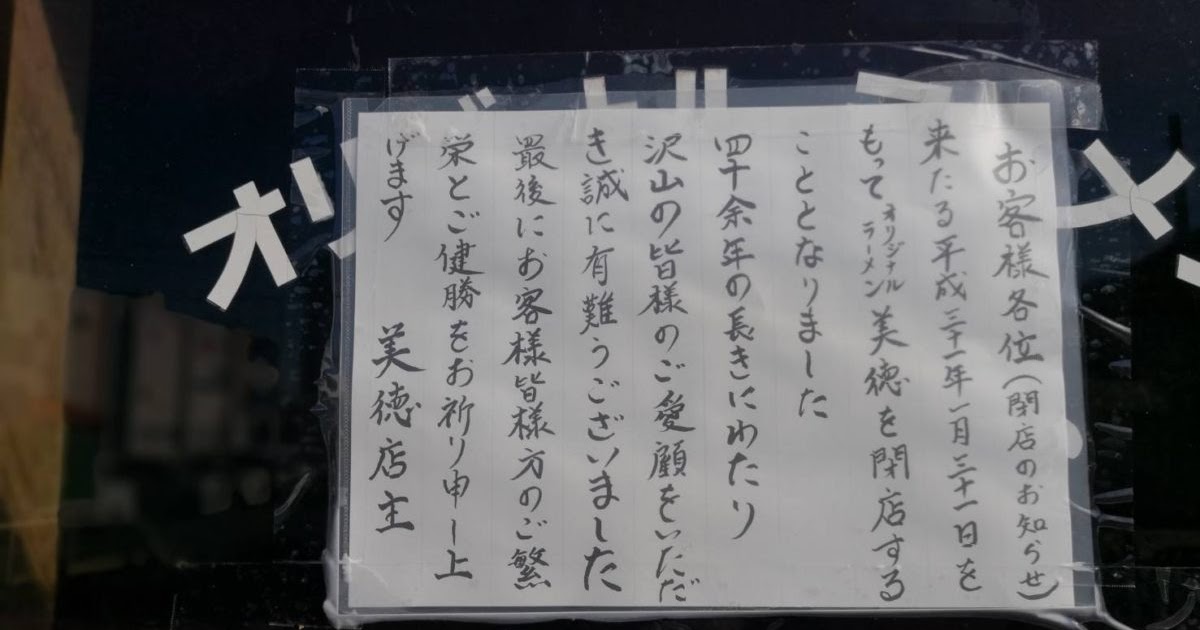 お客様各位(閉店のお知らせ)
来たる平成三十一年一月三十一日を
もってオリジナルラーメン美徳を閉店する
こととなりました
四十余年の長きにわたり
沢山の皆様のご愛顧をいただ
き誠に有難うございました
最後にお客様皆様方のご繁
栄とご健勝をお祈り申し上
げます 美徳店主